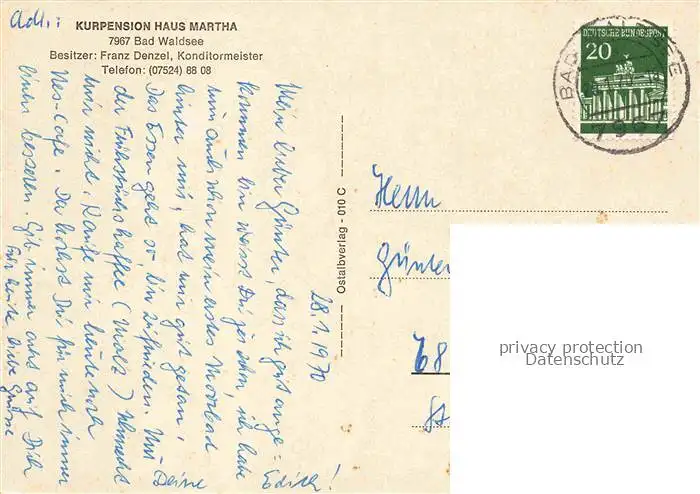 Adr.:
KURPENSION HAUS MARTHA
7967 Bad Waldsee
Besitzer: Franz Denzel, Konditormeister
Telefon: (07524) 88 08
28.1.1970
Mein lieber Günter, dass ich gut ange=
kommen bin weisst Du ja schon, ich habe
nun auch schon mein erstes Moorbad
hinter mir, hat mir gut getan,
Das Essen geht so, bin zufrieden. Nur
der Frühstückskaffee (Malz) schmeckt
mir nicht. Kaufe mir heute noch
Nes-Cafe. Du holst Dir für mich immer
einen besseren. Gib immer acht auf Dich
Für heute liebe Grüsse
Deine
Edith!
Ostalbverlag - 010 C
DEUTSCHE BUNDESPOST
20
BAD WALDSEE
7967
Herrn
Günter
68
privacy protection
Datenschutz